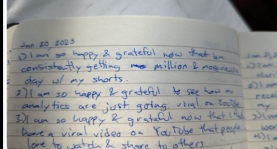 Jan 20, 2023
1) I am so happy & grateful now that I'm
consistently getting million &
day w/ my shorts.
2) I am so happy & grateful to see how my
analytics are just going viral on
3) I am so happy & grateful now that I
have a viral video on YouTube that people
love to watch & share to others